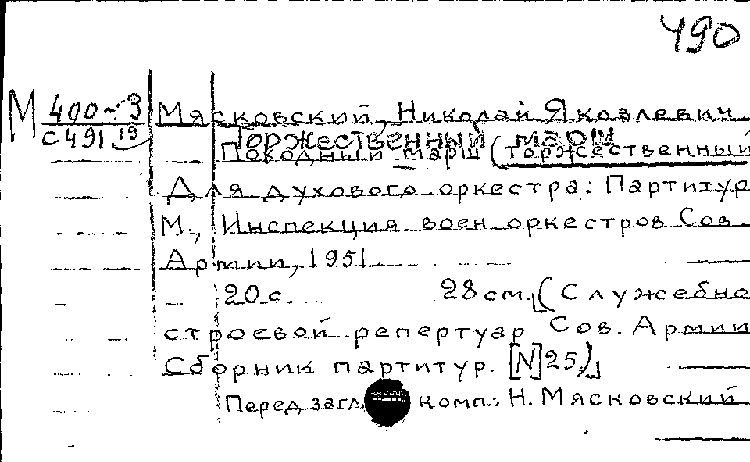 490
М 400-3 Мясковский, Николай Яковлевич
С491 19 Торжественный марш
Походный марш (торжественный
Для духового оркестра: Партитур
М., Инспекция воен. оркестров Сов.
Армии, 1951
20 с. 28 см. (Служебно
строевой репертуар Сов. Армии
Сборник партитур. [N]25)
Перед загл. комп.: Н. Мясковский